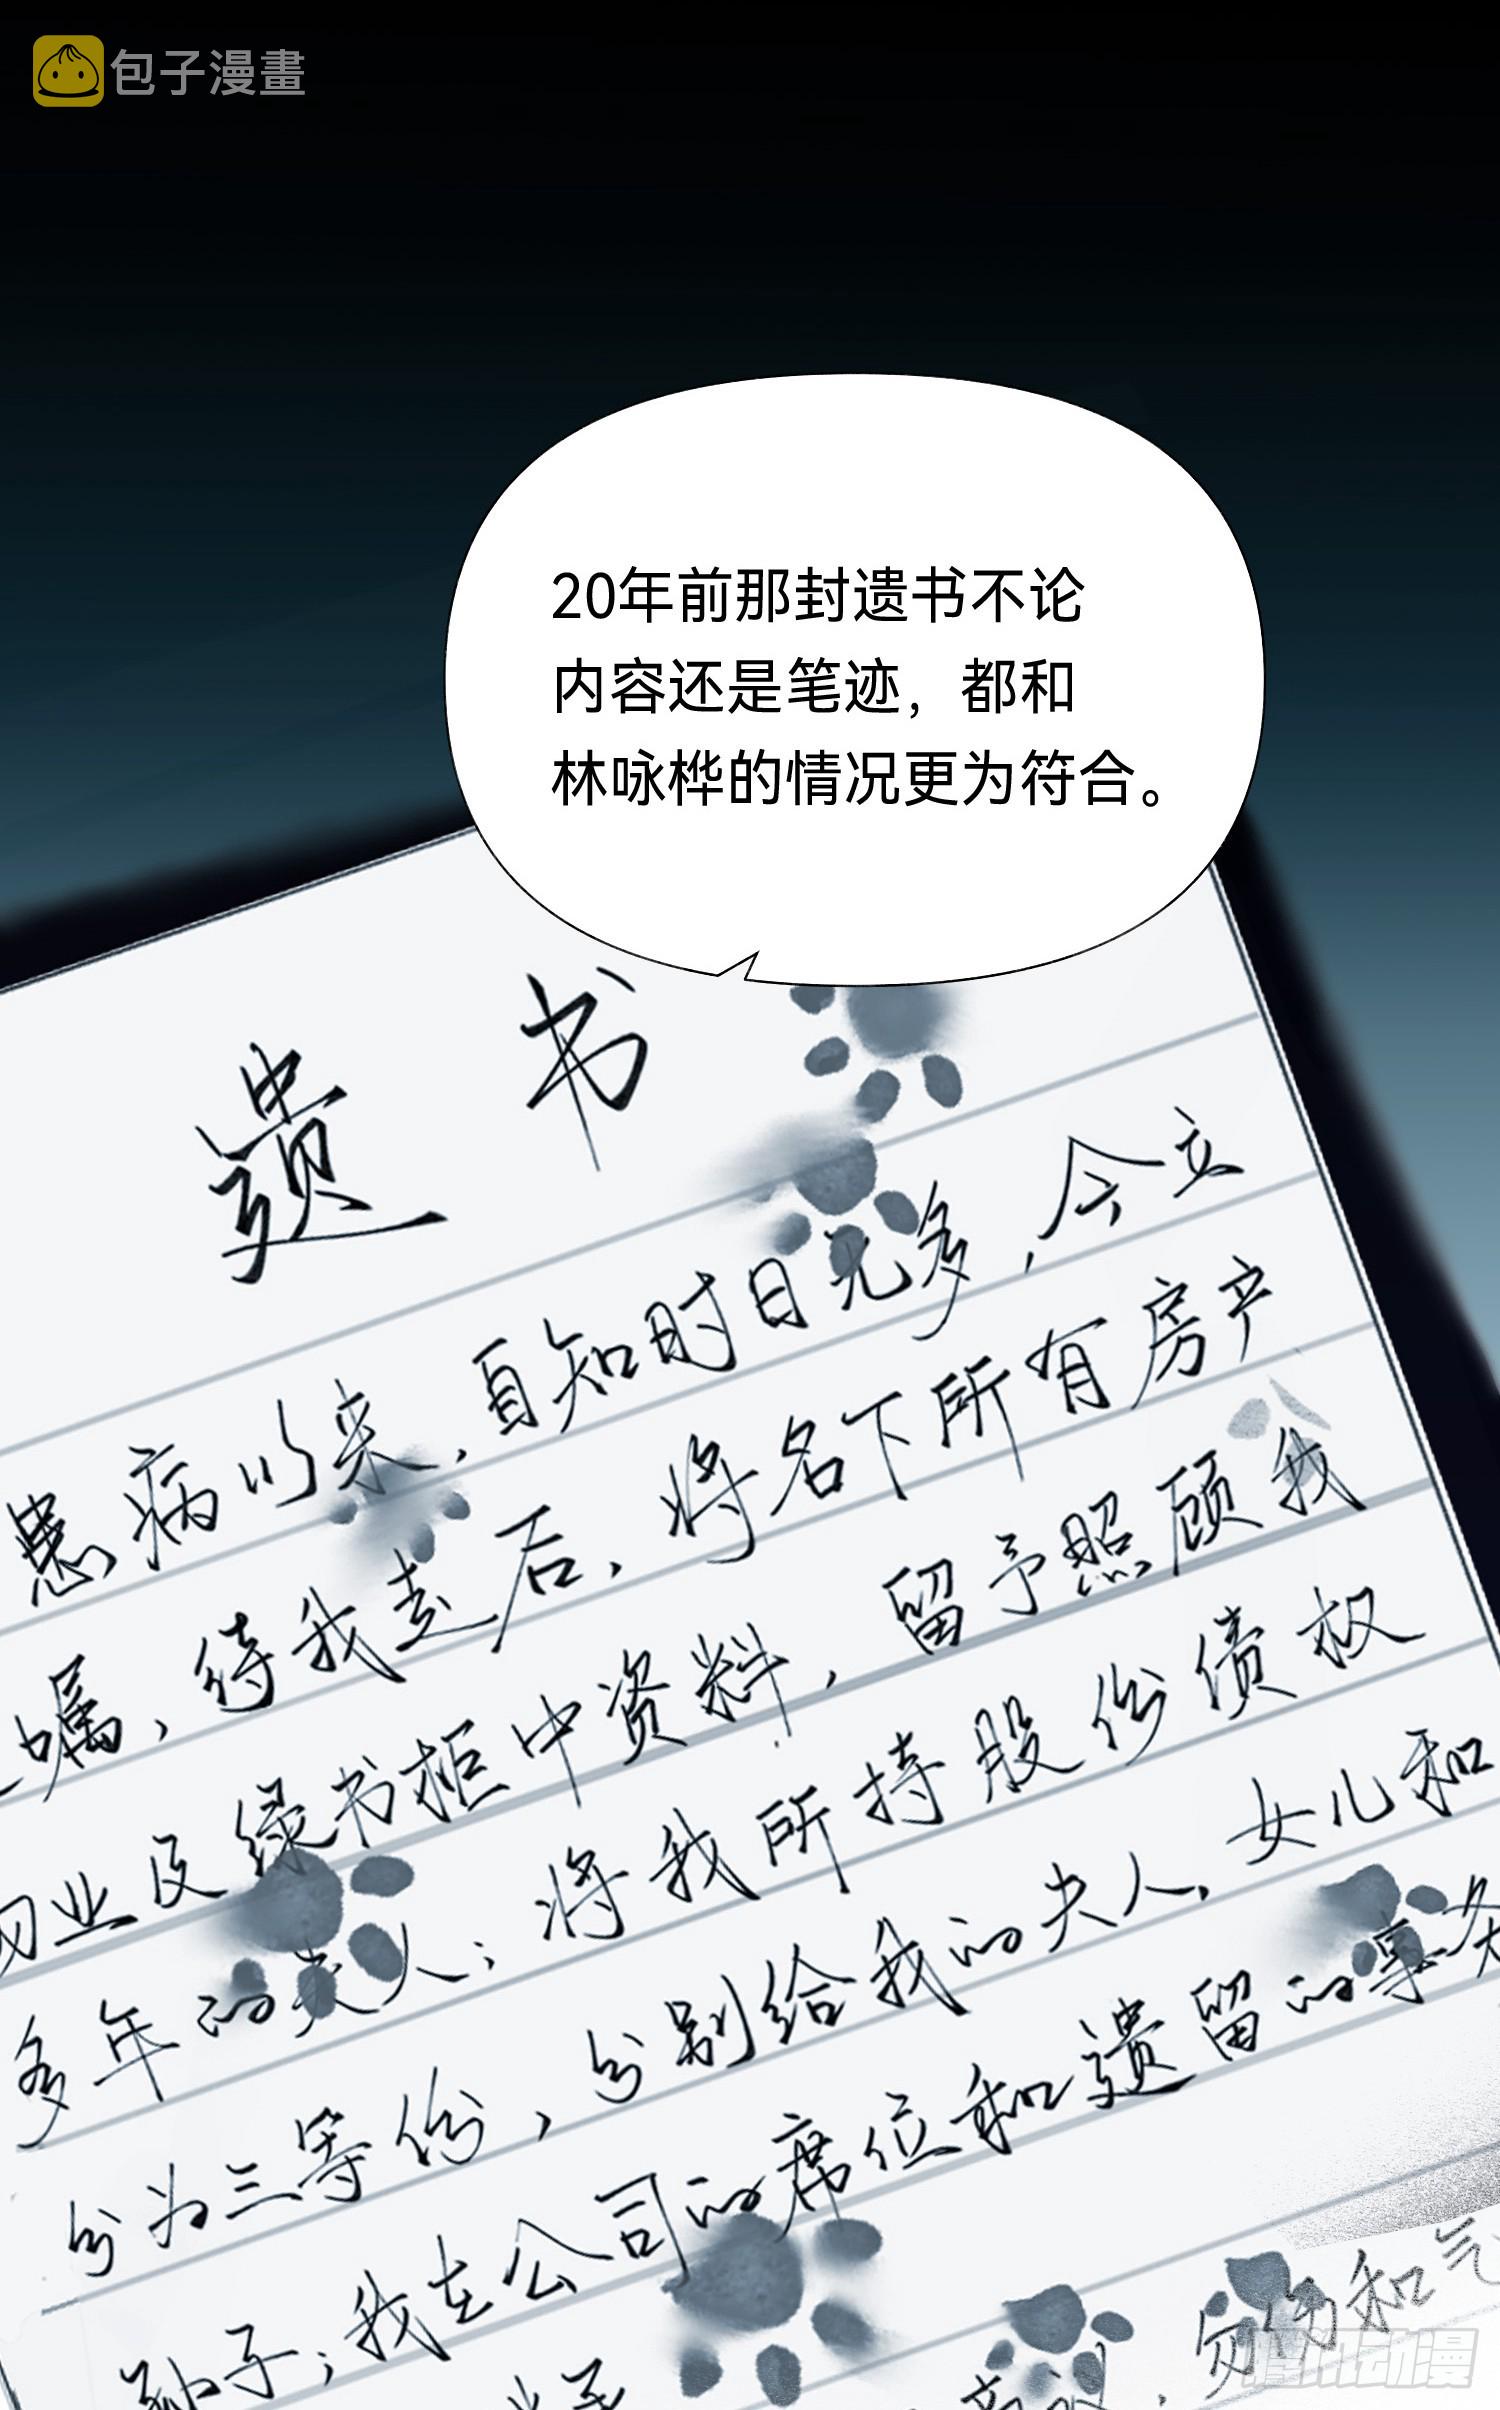 包子漫畫
20年前那封遗书不论
内容还是笔迹，都和
林咏桦的情况更为符合。
遗书
患病以来，自知时日无多，今立
嘱，待我走后，将名下所有房产
物业及绿书柜中资料，留予照顾我
多年的夫人；将我所持股份债权
分为三等份，分别给我的夫人、女儿和
孙子；我在公司的席位和遗留的事务
腾讯动漫